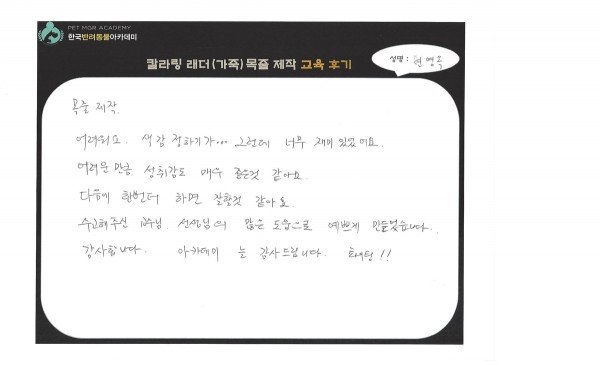 PET MGR ACADEMY
한국반려동물아카데미
칼라링 래더(가죽)목줄 제작 교육 후기
성명 : 명옥
목줄 제작.
어려워요. 색감 정하기가... 그런데 너무 재미있었어요.
어려운 만큼 성취감도 매우 좋은것 같아요.
다음에 한번더 하면 잘할것 같아요.
수고해주신 교수님, 선생님의 많은 도움으로 예쁘게 만들었습니다.
감사합니다. 아카데미 늘 감사드립니다. 화이팅!!